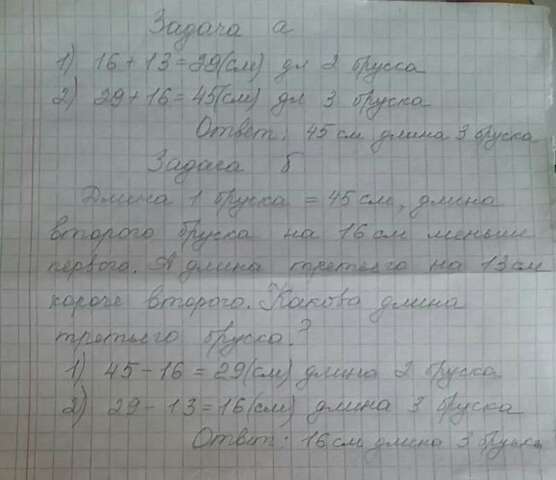 Задача а
1) 16 + 13 = 29(см) дл 2 бруска
2) 29 + 16 = 45(см) дл 3 бруска
Ответ: 45 см длина 3 бруска
Задача б
Длина 1 бруска = 45 см, длина
второго бруска на 16 см меньше
первого. А длина третьего на 13 см
короче второго. Какова длина
третьего бруска?
1) 45 - 16 = 29(см) длина 2 бруска
2) 29 - 13 = 16(см) длина 3 бруска
Ответ: 16 см длина 3 бруска